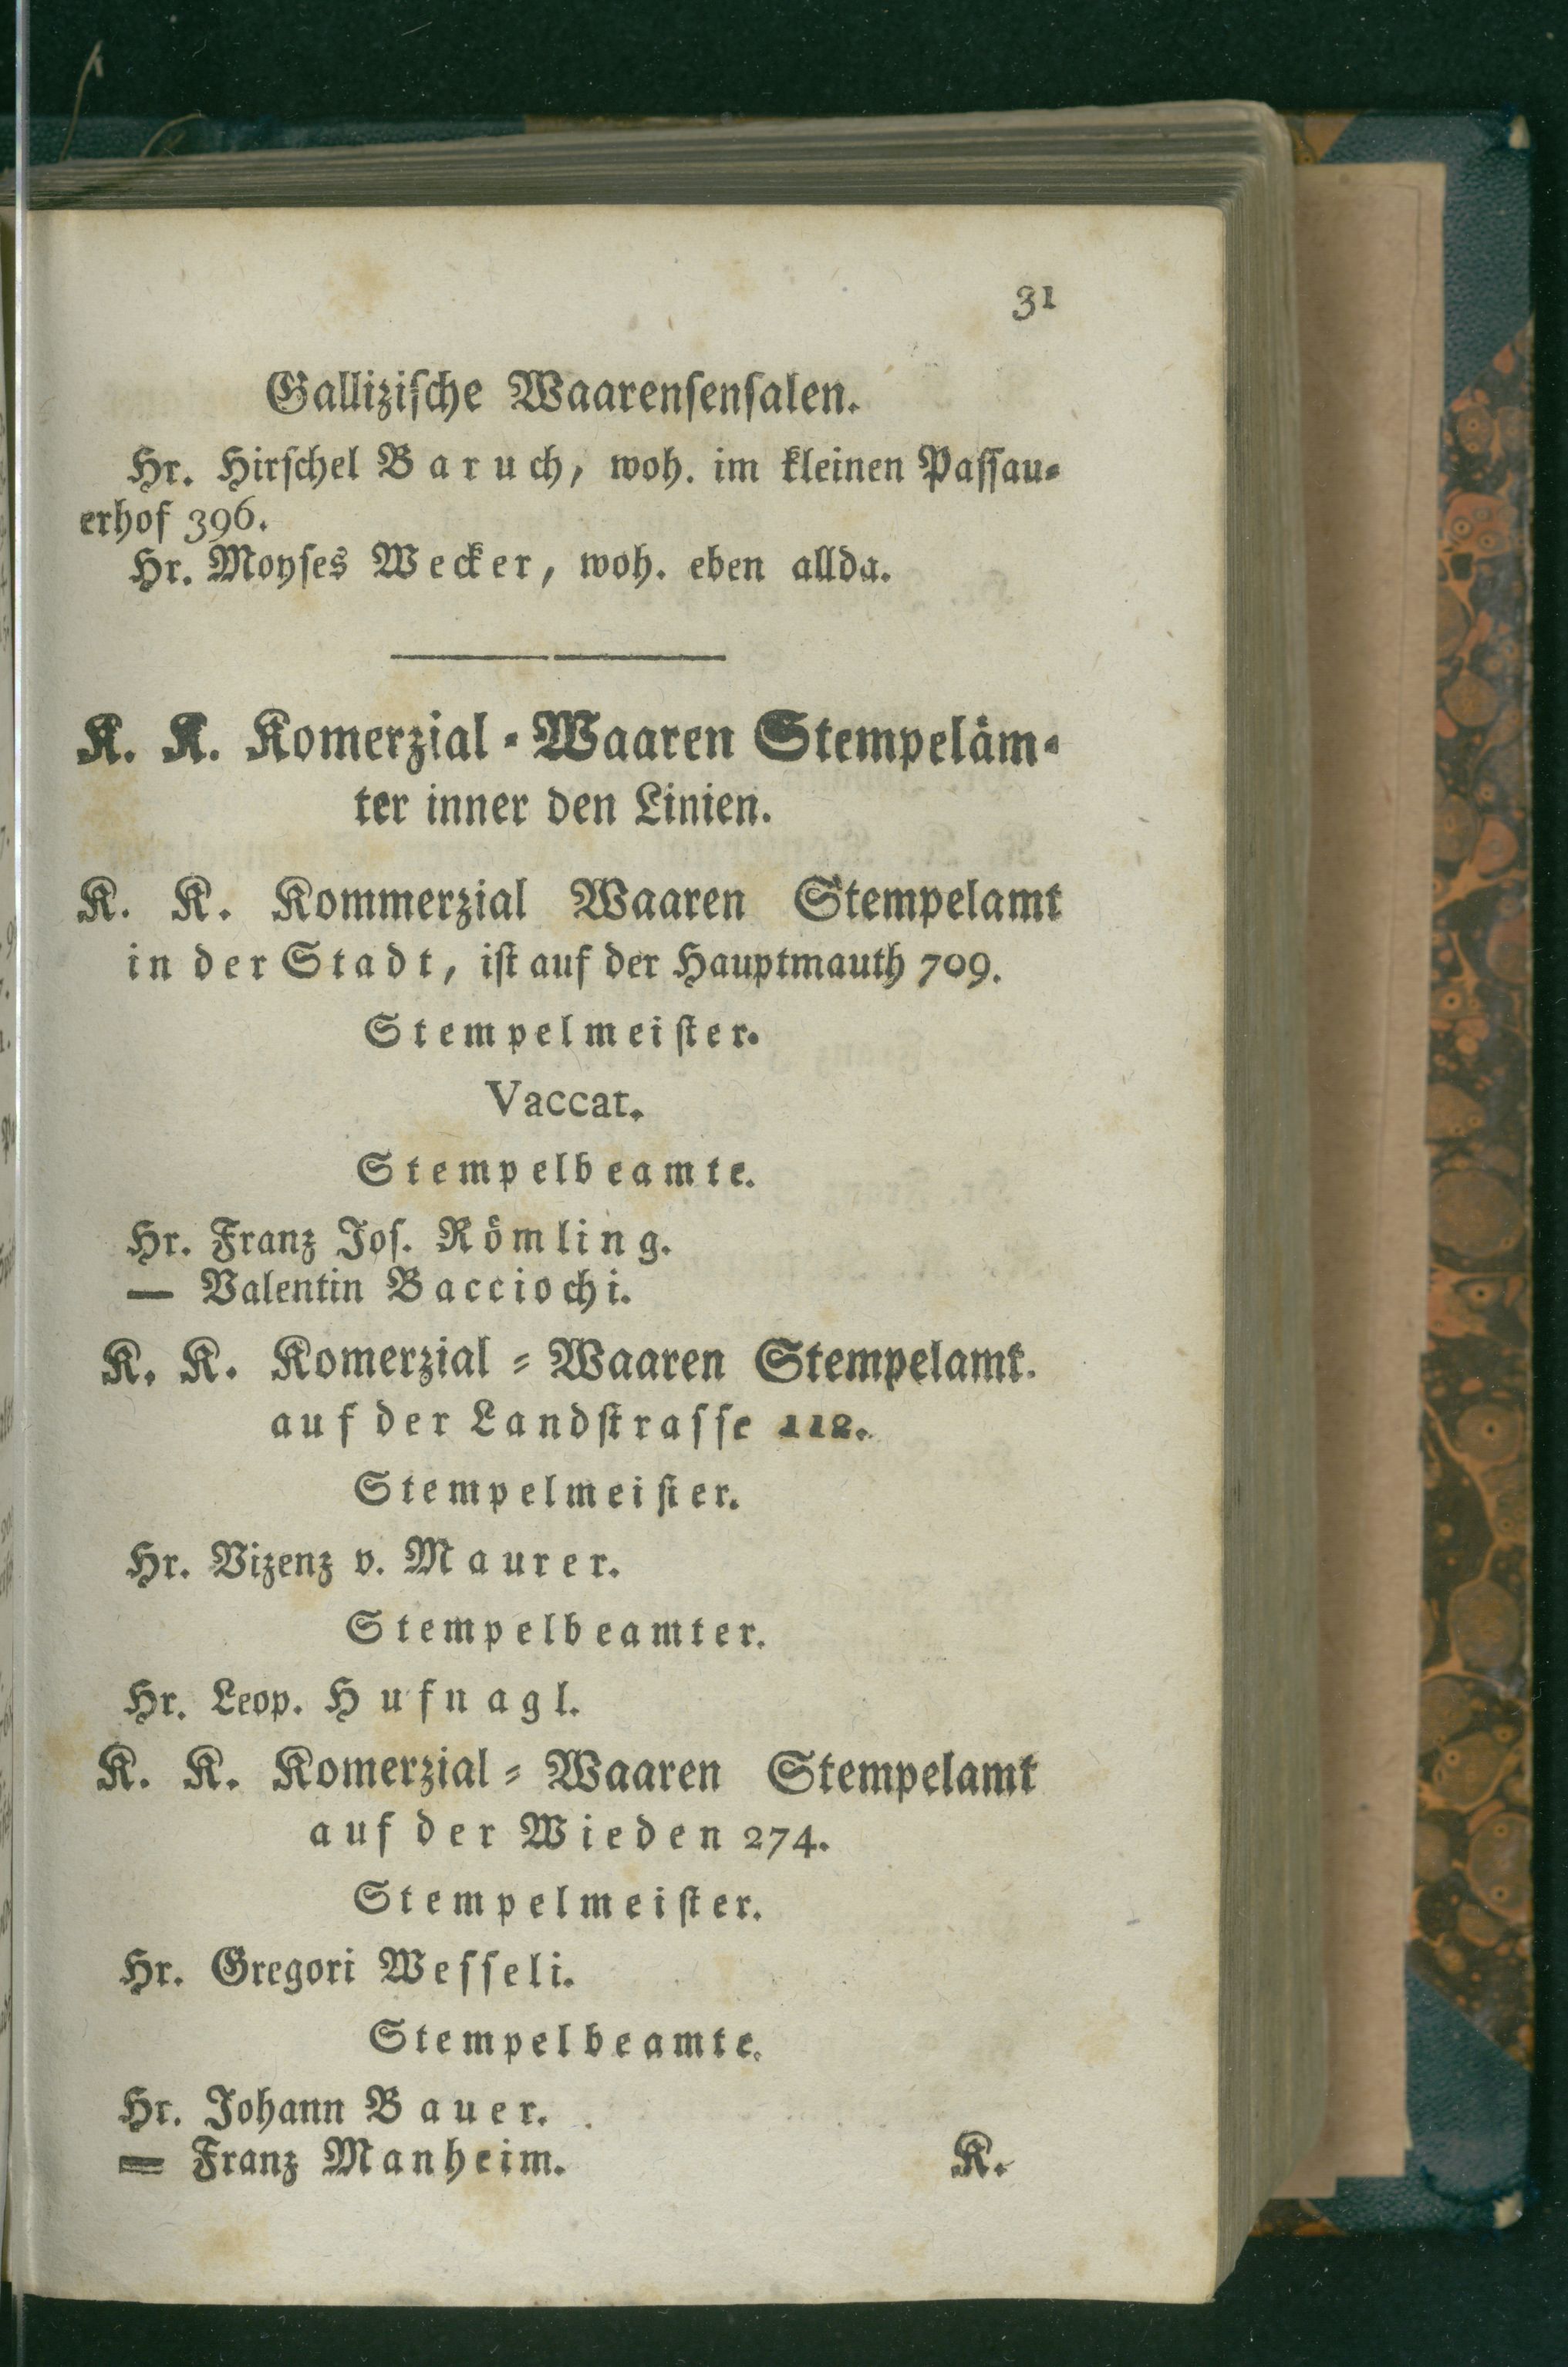 31
Gallizische Waarensensalen.
Hr. Hirschel Baruch, woh. im kleinen Passau-
erhof 396.
Hr. Moyses Wecker, woh. eben allda.
K. K. Komerzial-Waaren Stempeläm-
ter inner den Linien.
K. K. Kommerzial Waaren Stempelamt
in der Stadt, ist auf der Hauptmauth 709.
Stempelmeister.
Vaccat.
Stempelbeamte.
Hr. Franz Jos. Römling.
— Valentin Bacciochi.
K. K. Komerzial-Waaren Stempelamt.
auf der Landstrasse 112.
Stempelmeister.
Hr. Vizenz v. Maurer.
Stempelbeamter.
Hr. Leop. Hufnagl.
K. K. Komerzial-Waaren Stempelamt
auf der Wieden 274.
Stempelmeister.
Hr. Gregori Wesseli.
Stempelbeamte.
Hr. Johann Bauer.
— Franz Manheim.
K.